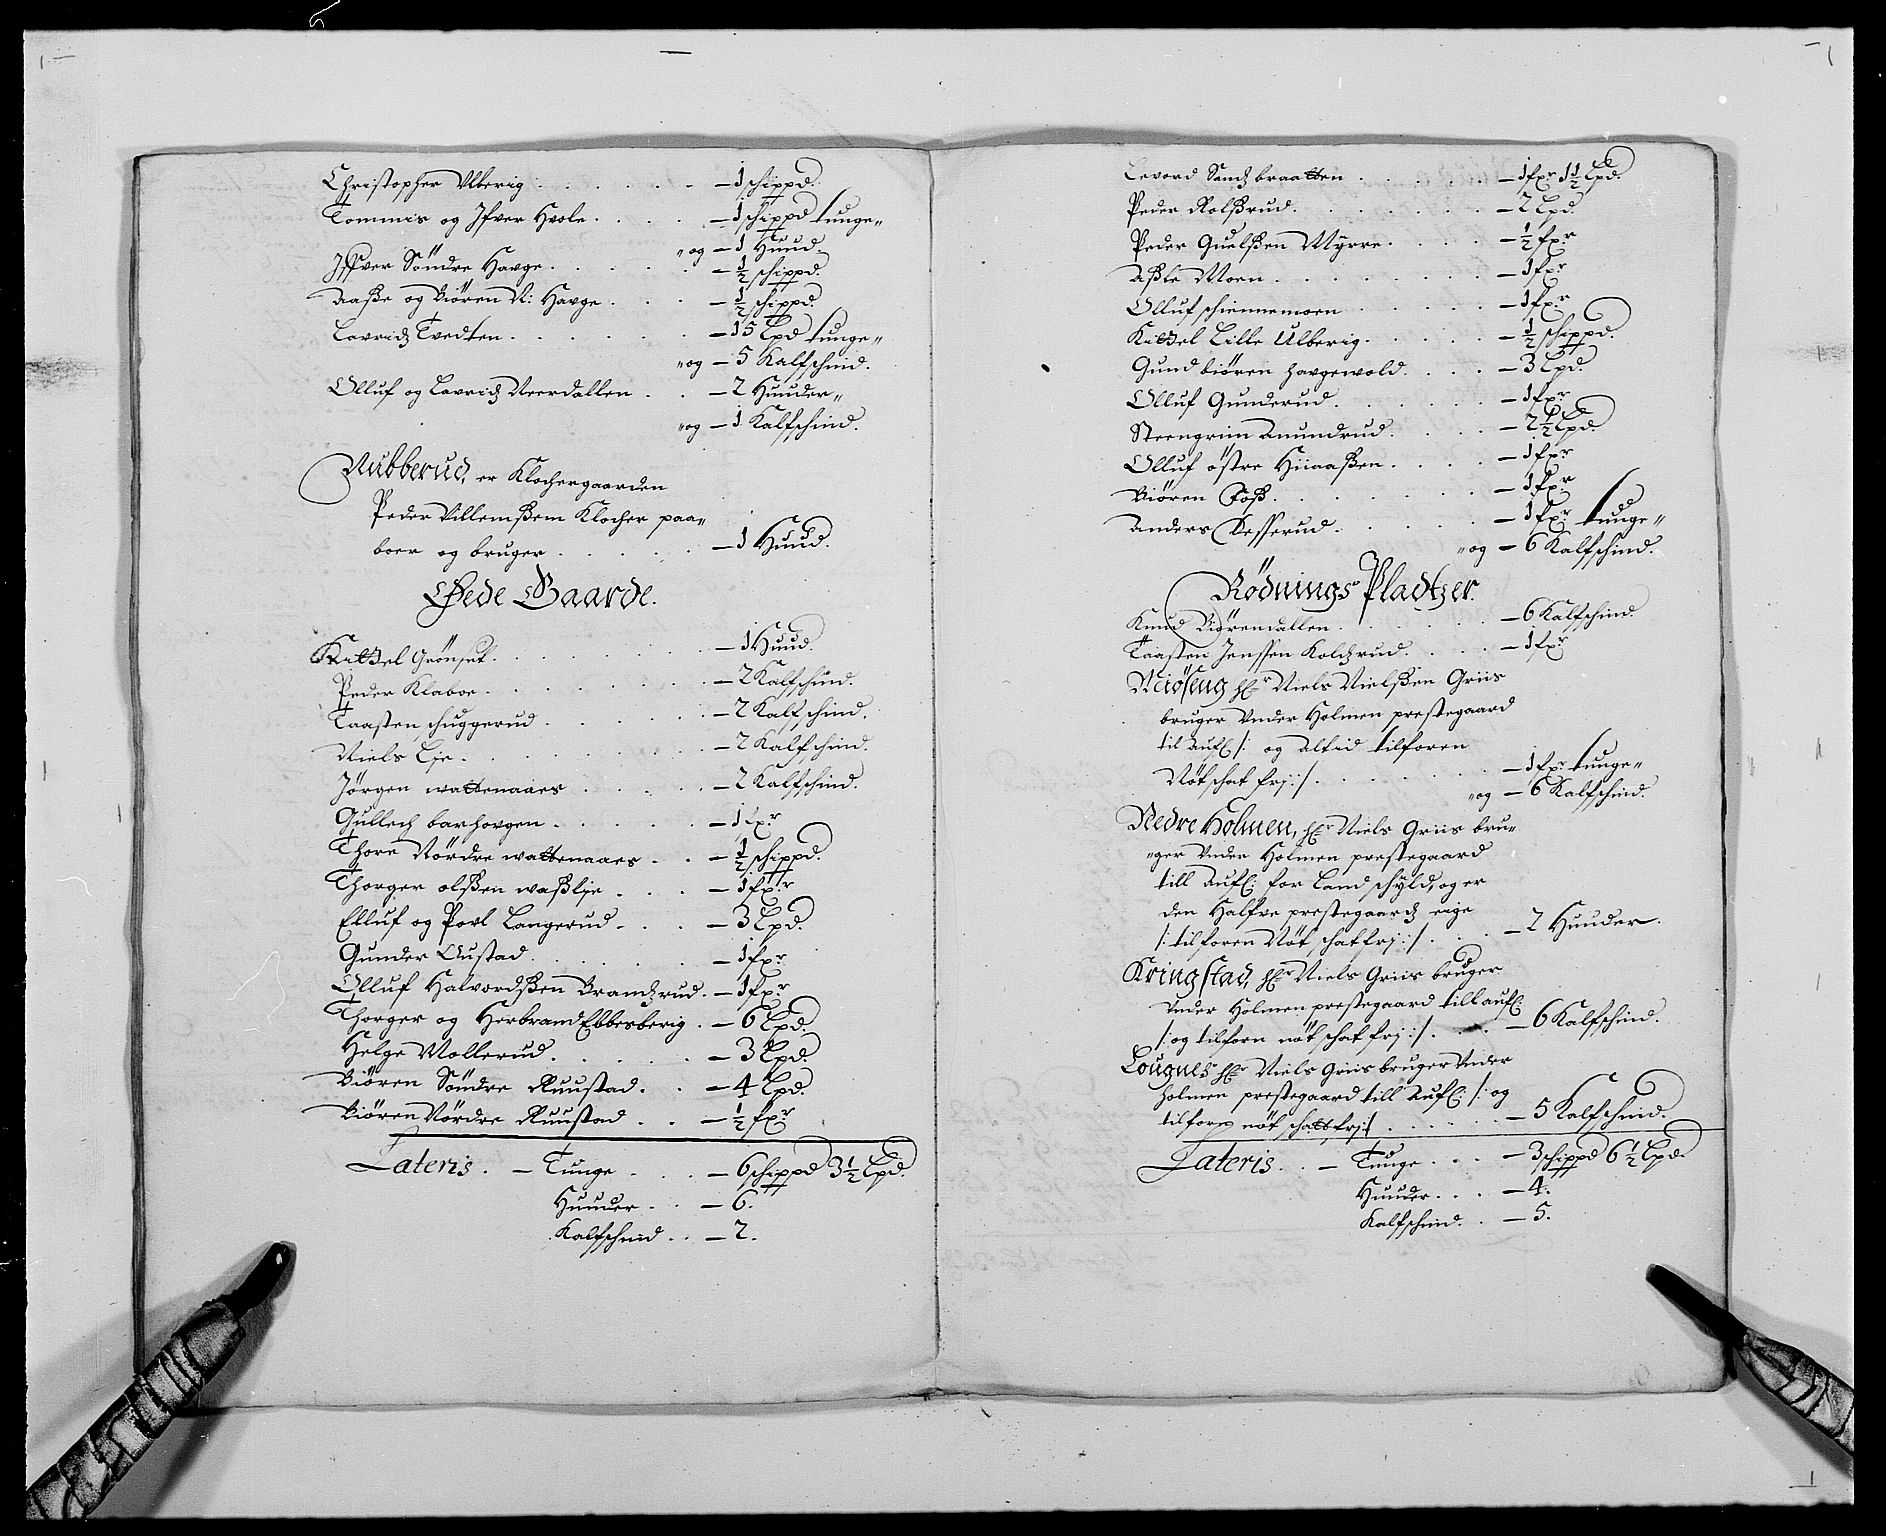 Christopher Ulberig . . . . . . – 1 schippd.
Tommis og Ifver Hvole . . . . – 1 schippd tunge„
„og – 1 Huud
Iffver Söndre Havge . . . . . – ½ schippd.
Aaße og Biören N: Havge . . . – ½ schippd
Lavridz Tvedten . . . . . – 15 Lpd tunge„
„og – 5 Kalfschind.
Olluf og Lavridz Neerdallen . . – 2 Huuder„
„og – 1 Kalfschind.
Nubberud, er Klochergaarden
Peder Villemßem Klocher paa„
boer og bruger . . . . . – 1 Huud.
Øede Gaarde.
Kittel Grönset . . . . . . – 1 Huud.
Peder Klaboe . . . . . . – 2 Kalfschind.
Taasten schuggerud . . . . . – 2 Kalfschind.
Niels Lje . . . . . . . – 2 Kalfschind.
Jörgen wattenaaes . . . . . – 2 Kalfschind.
Gullech barhovgen . . . . . – 1 fxr
Thore Nördre wattenaaes . . – ½ schippd.
Thorger olßen waßlje . . . . – 1 fxr
Elluf og Povl Langerud . . . – 3 Lpd.
Gunder Austad . . . . . . – 1 fxr
Olluf Halvordßen Brandzrud . – 1 fxr
Thorger og Herbrand Ebbesberig . – 6 Lpd.
Helge Mollerud . . . . . – 3 Lpd.
Biören Söndre Ruustad . . – 4 Lpd.
Biören Nördre Ruustad . . – ½ fxr
Lateris . – Tunge . . . – 6 schippd 3½ Lpd.
Huuder . . – 6.
Kalfschind . . – 2.
Levord Sandz braatten . . . . . – 1 fxr 1½ Lpd.
Peder Rolßrud . . . . . . – 2 Lpd.
Peder Guelßen Myrre . . . . – ½ fxr
Aßle Moen . . . . . . . – 1 fxr
Olluf schiennemoen . . . . – 1 fxr
Kittel Lille Ulberig . . . . – ½ schippd.
Gundbiören havgewold . . . – 3 Lpd.
Olluf Gunderud . . . . . – 1 fxr
Steengrim Anundrud . . . . – 2½ Lpd.
Olluf östre Hiiaaßen . . . . – 1 fxr
Biören Foß . . . . . . . – 1 fxr
Anders Kesserud . . . . . – 1 fxr tunge„
„og – 6 Kalfschind.
Rödnings Pladtzer.
Knud Biörendallen . . . . . – 6 Kalfschind.
Taasten Jenssen Kolchrud . . . – 1 fxr
Miöseng hEr Niels Nielßen Griis
bruger under Holmen prestegaard
til Aufl /: og altid tilforen
Nöt schat frj: / . . . . . – 1 fxr tunge„
„og – 6 Kalfschind.
Nedre Holmen, hEr Niels Griis bru„
„ger under Holmen prestegaard
till Aufl: for Landschyld, og er
den Halfve prestegaardz eige
/: tilforen Nöt schat frj: / . . . – 2 Huuder.
Kringstad, hEr Niels Griis bruger
under Holmen prestegaard till aufl:
/: og tilforn nöt schat frj: / . . – 6 Kalfschind.
Lougnes hEr Niels Griis bruger under
Holmen prestegaard till Aufl: /: og
tilforn nöt schatt frj: / . . . . – 5 Kalfschind.
Lateris . . – Tunge . . . – 3 schippd 6½ Lpd.
Huuder . . . – 4.
Kalfschind . . – 5.